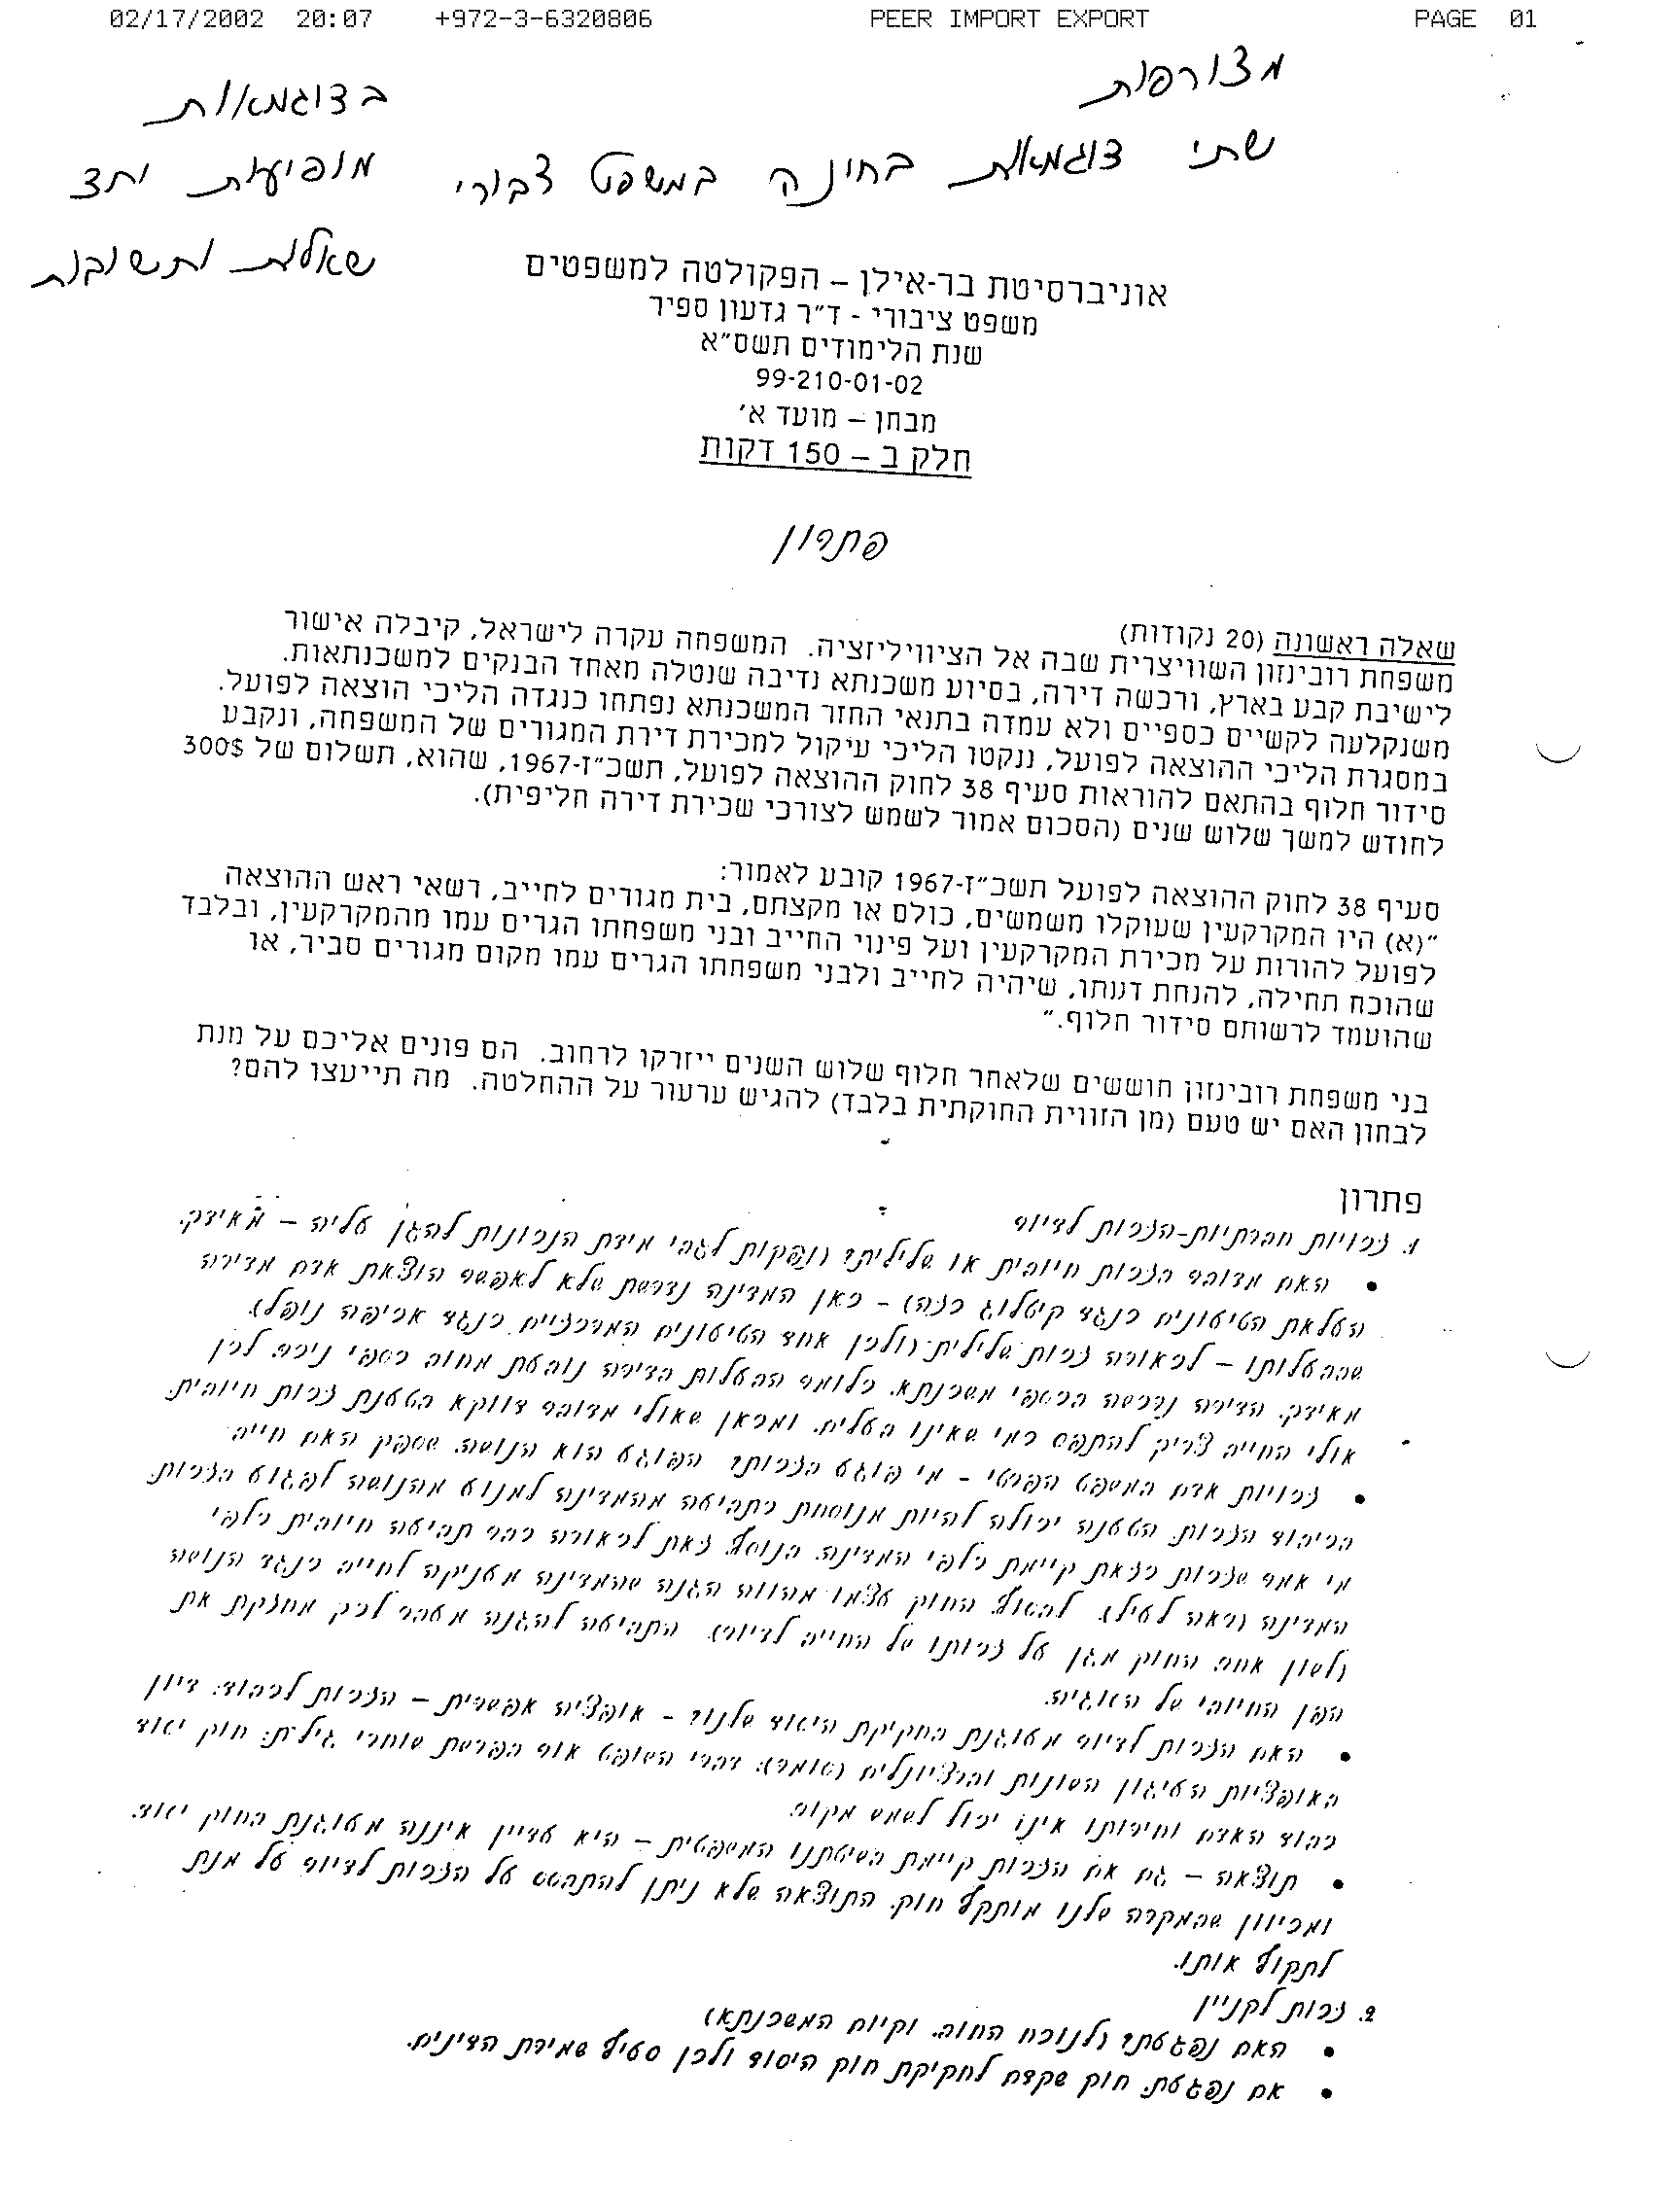 02/17/2002 20:07 +972-3-6320806 PEER IMPORT EXPORT PAGE 01
מצורפות
שתי דוגמאות בחינה במשפט ציבורי
בדוגמאות
מופיעות יחד
שאלות ותשובות
אוניברסיטת בר-אילן – הפקולטה למשפטים
משפט ציבורי - ד"ר גדעון ספיר
שנת הלימודים תשס"א
99-210-01-02
מבחן – מועד א'
חלק ב – 150 דקות
פתרון
שאלה ראשונה (20 נקודות)
משפחת רובינזון השוויצרית שבה אל הציוויליזציה. המשפחה עקרה לישראל, קיבלה אישור
לישיבת קבע בארץ, ורכשה דירה, בסיוע משכנתא נדיבה שנטלה מאחד הבנקים למשכנתאות.
משנקלעה לקשיים כספיים ולא עמדה בתנאי החזר המשכנתא נפתחו כנגדה הליכי הוצאה לפועל.
במסגרת הליכי ההוצאה לפועל, ננקטו הליכי עיקול למכירת דירת המגורים של המשפחה, ונקבע
סידור חלוף בהתאם להוראות סעיף 38 לחוק ההוצאה לפועל, תשכ"ז-1967, שהוא, תשלום של 300$
לחודש למשך שלוש שנים (הסכום אמור לשמש לצורכי שכירת דירה חליפית).
סעיף 38 לחוק ההוצאה לפועל תשכ"ז-1967 קובע לאמור:
"(א) היו המקרקעין שעוקלו משמשים, כולם או מקצתם, בית מגורים לחייב, רשאי ראש ההוצאה
לפועל להורות על מכירת המקרקעין ועל פינוי החייב ובני משפחתו הגרים עמו מהמקרקעין, ובלבד
שהוכח תחילה, להנחת דעתו, שיהיה לחייב ולבני משפחתו הגרים עמו מקום מגורים סביר, או
שהועמד לרשותם סידור חלוף."
בני משפחת רובינזון חוששים שלאחר חלוף שלוש השנים ייזרקו לרחוב. הם פונים אליכם על מנת
לבחון האם יש טעם (מן הזווית החוקתית בלבד) להגיש ערעור על ההחלטה. מה תייעצו להם?
פתרון
1. זכויות חברתיות-הזכות לדיור
• האם מדובר בזכות חיובית או שלילית? (נפקות לגבי מידת הנכונות להגן עליה – מאידך.
העלאת הטיעונים כנגד קיטלוג כזה) – כאן המדינה נדרשת שלא לאפשר הוצאת אדם מדירה
שבבעלותו – לכאורה זכות שלילית (ולכן אחד הטיעונים המרכזיים כנגד אכיפה נופל).
מאידך. הדירה נרכשה בכספי משכנתא. כלומר הבעלות בדירה נובעת מחוב כספי ניכר. לכן
אולי החייב צריך להתפס כמי שאינו בעלים. ומכאן שאולי מדובר דווקא בטענת זכות חיובית.
• זכויות אדם במשפט הפרטי – מי פוגע בזכות? הפוגע הוא הנושה. שספק האם חייב
בכיבוד הזכות. הטענה יכולה להיות מנוסחת כתביעה מהמדינה למנוע מהנושה לפגוע בזכות.
מי אמר שזכות כזאת קיימת כלפי המדינה. בנוסף. זאת לכאורה כבר תביעה חיובית כלפי
המדינה (ראה לעיל). להוסיף. החוק עצמו מהווה הגנה שהמדינה מעניקה לחייב כנגד הנושה
(לשון אחר. החוק מגן על זכותו של החייב לדיור). התביעה להגנה מעבר לכך מחזקת את
הפן החיובי של הסוגיה.
• האם הזכות לדיור מעוגנת בחקיקת היסוד שלנו? – אופציה אפשרית – הזכות לכבוד. דיון
באופציות העיגון השונות והרציונלים (סומר). דברי השופט אור בפרשת שוחרי גיל"ת: חוק יסוד
כבוד האדם וחירותו אינו יכול לשמש מקור.
• תוצאה – גם אם הזכות קיימת בשיטתנו המשפטית – היא עדיין איננה מעוגנת בחוק יסוד.
ומכיוון שבמקרה שלנו מותקף חוק. התוצאה שלא ניתן להתבסס על הזכות לדיור על מנת
לתקוף אותו.
2. זכות לקניין
• האם נפגעת? (לנוכח החוב. וקיום המשכנתא)
• אם נפגעת. חוק שקדם לחקיקת חוק היסוד ולכן סעיף שמירת הדינים.